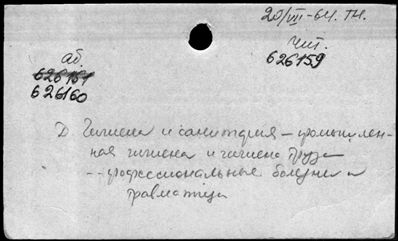 20/VIII-64. ТН.
аб.
чит.
626159
626161
626160
Д Гигиена и санитария - промышлен-
ная гигиена и гигиена труда
-- профессиональные болезни и
травматизм